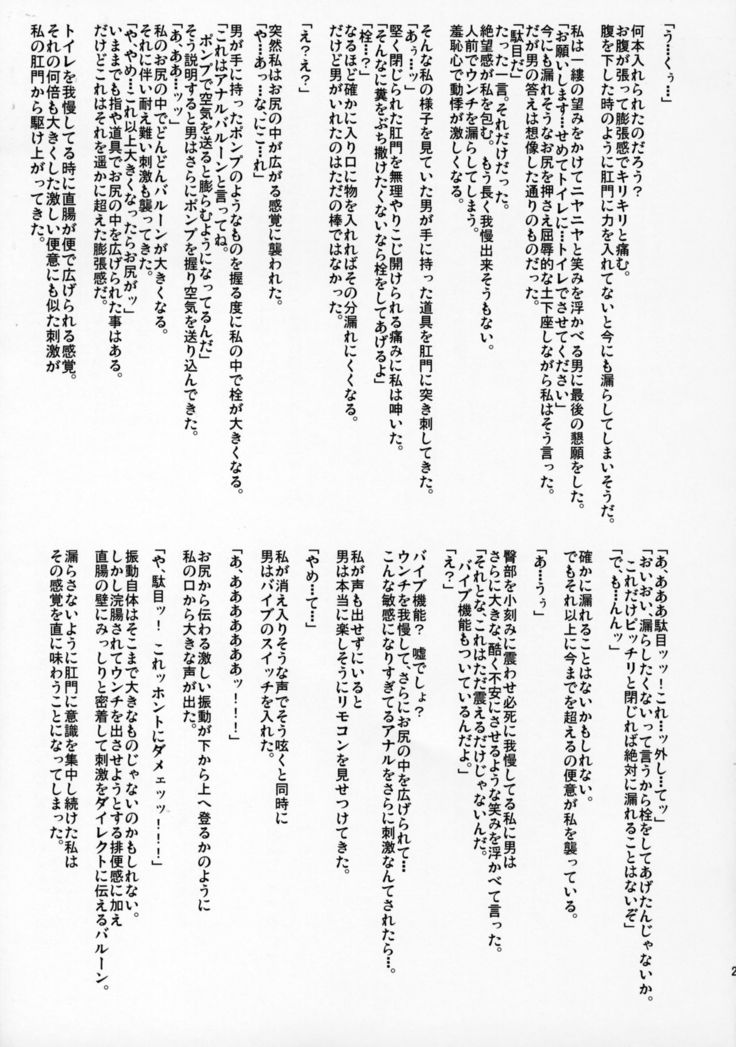 「う…くぅ…」
何本入れられたのだろう？
お腹が張って膨張感でキリキリと痛む。
腹を下した時のように肛門に力を入れてないと今にも漏らしてしまいそうだ。
私は一縷の望みをかけてニヤニヤと笑みを浮かべる男に最後の懇願をした。
「お願いします…せめてトイレに…トイレでさせてください」
今にも漏れそうなお尻を押さえ屈辱的な土下座しながら私はそう言った。
だが男の答えは想像した通りのものだった。
「駄目だ」
たった一言。それだけだった。
絶望感が私を包む。もう長く我慢出来そうもない。
人前でウンチを漏らしてしまう。
羞恥心で動悸が激しくなる。
そんな私の様子を見ていた男が手に持った道具を肛門に突き刺してきた。
「あぅ…ッ」
堅く閉じられた肛門を無理やりこじ開けられる痛みに私は呻いた。
「そんなに糞をぶち撒けたくないなら栓をしてあげるよ」
「栓…？」
なるほど確かに入り口に物を入れればその分漏れにくくなる。
だけど男がいれたのはただの棒ではなかった。
「え？え？」
突然私はお尻の中が広がる感覚に襲われた。
「や…あっ…な、にこ…れ」
男が手に持ったポンプのようなものを握る度に私の中で栓が大きくなる。
「これはアナルバルーンと言ってね。
ポンプで空気を送ると膨らむようになってるんだ」
そう説明すると男はさらにポンプを握り空気を送り込んできた。
「あ、ああ…ッッ」
私のお尻の中でどんどんバルーンが大きくなる。
それに伴い耐え難い刺激も襲ってきた。
「や、やめ…これ以上大きくなったらお尻がッ」
いままでも指や道具でお尻の中を広げられた事はある。
だけどこれはそれを遥かに超えた膨張感だ。
トイレを我慢してる時に直腸が便で広げられる感覚。
それの何倍も大きくした激しい便意にも似た刺激が
私の肛門から駆け上がってきた。
「あ、あああ駄目ッッ！これ…ッ外し…てッ」
「おいおい、漏らしたくないって言うから栓をしてあげたんじゃないか。
これだけピッチリと閉じれば絶対に漏れることはないぞ」
「で、も…んんッ」
確かに漏れることはないかもしれない。
でもそれ以上に今までを超えるの便意が私を襲っている。
「あ…うぅ」
臀部を小刻みに震わせ必死に我慢してる私に男は
さらに大きな、酷く不安にさせるような笑みを浮かべて言った。
「それとな、これはただ震えるだけじゃないんだ。
バイブ機能もついているんだよ。」
「え？」
バイブ機能？　嘘でしょ？
ウンチを我慢して、さらにお尻の中を広げられて…
こんな敏感になりすぎてるアナルをさらに刺激なんてされたら…。
私が声も出せずにいると
男は本当に楽しそうにリモコンを見せつけてきた。
「やめ…て…」
私が消え入りそうな声でそう呟くと同時に
男はバイブのスイッチを入れた。
「あ、あああああああッ！！！」
お尻から伝わる激しい振動が下から上へ登るかのように
私の口から大きな声が出た。
「や、駄目ッ！　これッホントにダメェッッ！！！」
振動自体はそこまで大きなものじゃないのかもしれない。
しかし浣腸されてウンチを出させようとする排便感に加え
直腸の壁にみっしりと密着して刺激をダイレクトに伝えるバルーン。
漏らさないように肛門に意識を集中し続けた私は
その感覚を直に味わうことになってしまった。
2